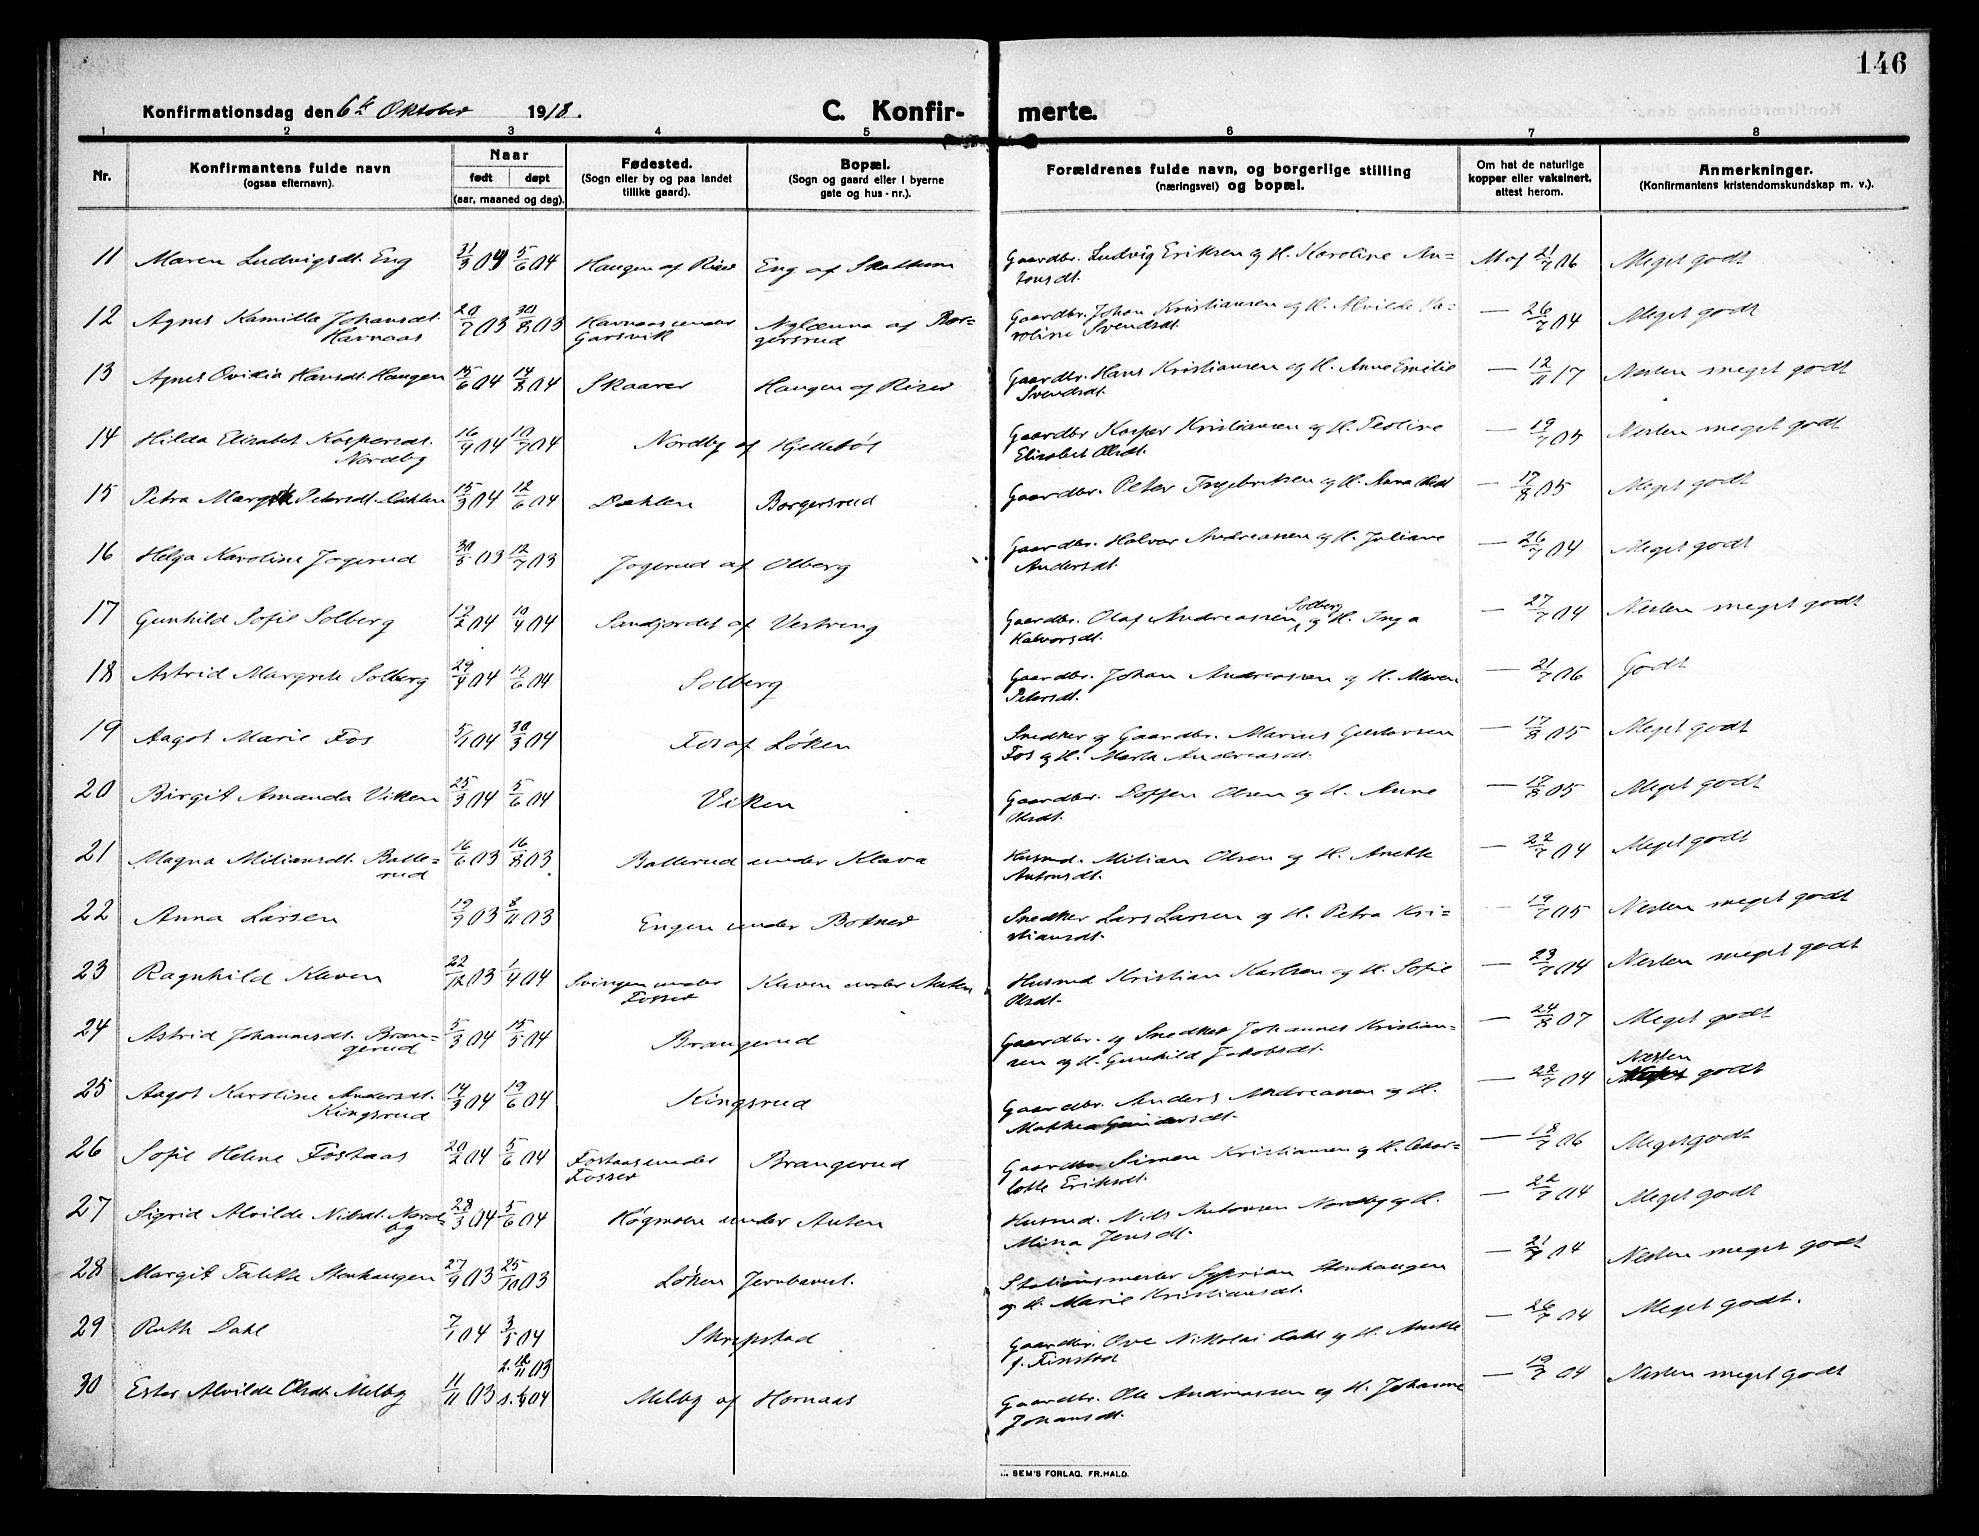 146
Konfirmationsdag den 6te Oktober 1918.
C. Konfir-
merte.
1 2 3 4 5 6 7 8
Nr.
Konfirmantens fulde navn
(ogsaa efternavn).
Naar
født døpt
(aar, maaned og dag).
Fødested.
(Sogn eller by og paa landet
tillike gaard).
Bopæl.
(Sogn og gaard eller i byerne
gate og hus-nr.).
Forældrenes fulde navn, og borgerlige stilling
(næringsvei) og bopæl.
Om hat de naturlige
kopper eller vaksinert,
attest herom.
Anmerkninger.
(Konfirmantens kristendomskundskap m. v.).
11 Maren Ludvigsdt. Eng 31/3 04 5/6 04 Haugen af Riser Eng af Skattum Gaardbr. Ludvig Eriksen og H. Karoline An-
tonsdt. 21/7 06 Meget godt
12 Agnes Kamilla Johansdt. 20/7 03 30/8 03 Havnaas under Nylænna af Bor- Gaardbr. Johan Kristiansen og H. Alvilde Ka- — 26/7 04 Meget godt
Havnaas Garsvik gersrud roline Svendsdt.
13 Agnes Ovidia Hansdt. Haugen 15/6 04 14/8 04 Skaarer Haugen af Riser Gaardbr. Hans Kristiansen og H. Anne Emilie — 12/11 17 Nesten meget godt
Svendsdt.
14 Hilda Elisabet Kaspersdt. 16/4 04 10/7 04 Nordby af Hjellebøl Gaardbr Kasper Kristiansen og H. Teoline — 19/7 05 Nesten meget godt
Nordby Elisabet Olsdt.
15 Petra Petersdt. Dæhlen 15/3 04 12/6 04 Dæhlen Borgersrud Gaardbr. Peter Fingebriksen og H. Anna — 17/8 05 Meget godt
16 Helga Karoline Jogerud 30/5 03 12/7 03 Jogerud af Olberg Gaardbr. Halvor Andreassen og H. Juliane — 26/7 04 Meget godt
Andersdt.
17 Gunhild Sofie Solberg 19/2 04 10/4 04 Sandjordet af Vestreng Gaardbr. Olaf Andreassen Solberg og H. Inga — 27/7 04 Nesten meget godt
Halvorsdt.
18 Astrid Margrete Solberg 29/4 04 19/6 04 Solberg Gaardbr. Johan Andreassen og H. Maren — 21/7 06 Godt
Petersdt.
19 Aagot Marie Fos 5/1 04 30/3 04 Fos af Løken Snedker og Gaardbr. Marius Gustavsen — 17/8 05 Meget godt
Fos og H. Marta Andreasdt.
20 Birgit Amanda Viken 25/3 04 5/6 04 Viken Gaardbr. Toffen Olsen og H. Anne — 17/8 05 Meget godt
Olsdt.
21 Magna Miliansdt. Balle- 16/6 03 16/8 03 Ballerud under Klava Husmd. Milian Olsen og H. Anette — 22/7 04 Meget godt
rud Antonsdt.
22 Anna Larsen 19/9 03 8/11 03 Engen under Botner Snedker Lars Larsen og H. Petra Kri- — 19/7 05 Nesten meget godt
stiansdt.
23 Ragnhild Kleven 22/12 03 1/4 04 Svingen under Kleven under Auten Husmd Kristian Karlsen og H. Sofie — 23/7 04 Nesten meget godt
Fosser Olsdt.
24 Astrid Johannesdt. Bran- 5/3 04 15/5 04 Brangerud Gaardbr. og Snedker Johannes Kristian- — 24/8 07 Meget godt
gerud sen og H. Gunhild Jakobsdt.
25 Aagot Karoline Andersdt. 14/3 04 19/6 04 Kingsrud Gaardbr. Anders Andreassen og H. — 22/7 04 Næsten godt
Kingsrud Mathea Gundersdt.
26 Sofie Helene Fostaas 20/2 04 5/6 04 Fostaas under Brangerud Gaardbr Simen Kristiansen og H. Char- — 18/7 06 Meget godt
Fosser lotte Eriksdt.
27 Sigrid Alvilde Nilsdt. Nord- 28/3 04 5/6 04 Høgmoen under Auten Husmd. Nils Antonsen Nordby og H. — 22/7 04 Meget godt
by Mina Jensdt.
28 Margit Talette Stenhaugen 27/9 03 25/10 03 Løken Jernbanest. Stationsmester Syprian Stenhaugen — 21/7 04 Nesten meget godt
og H. Marie Kristiansdt.
29 Ruth Dahl 7/1 04 3/5 04 Skrepstad Gaardbr. Ove Nikolai Dahl og H. Anette — 26/7 04 Meget godt.
f. Finstad
30 Ester Alvilde Olsdt. Melby 11/11 03 Melby af Hornaas Gaardbr. Ole Andreassen og H. Johanne — 19/7 04 Nesten meget godt
Johansdt.
SEM'S FORLAG, FR.HALD.